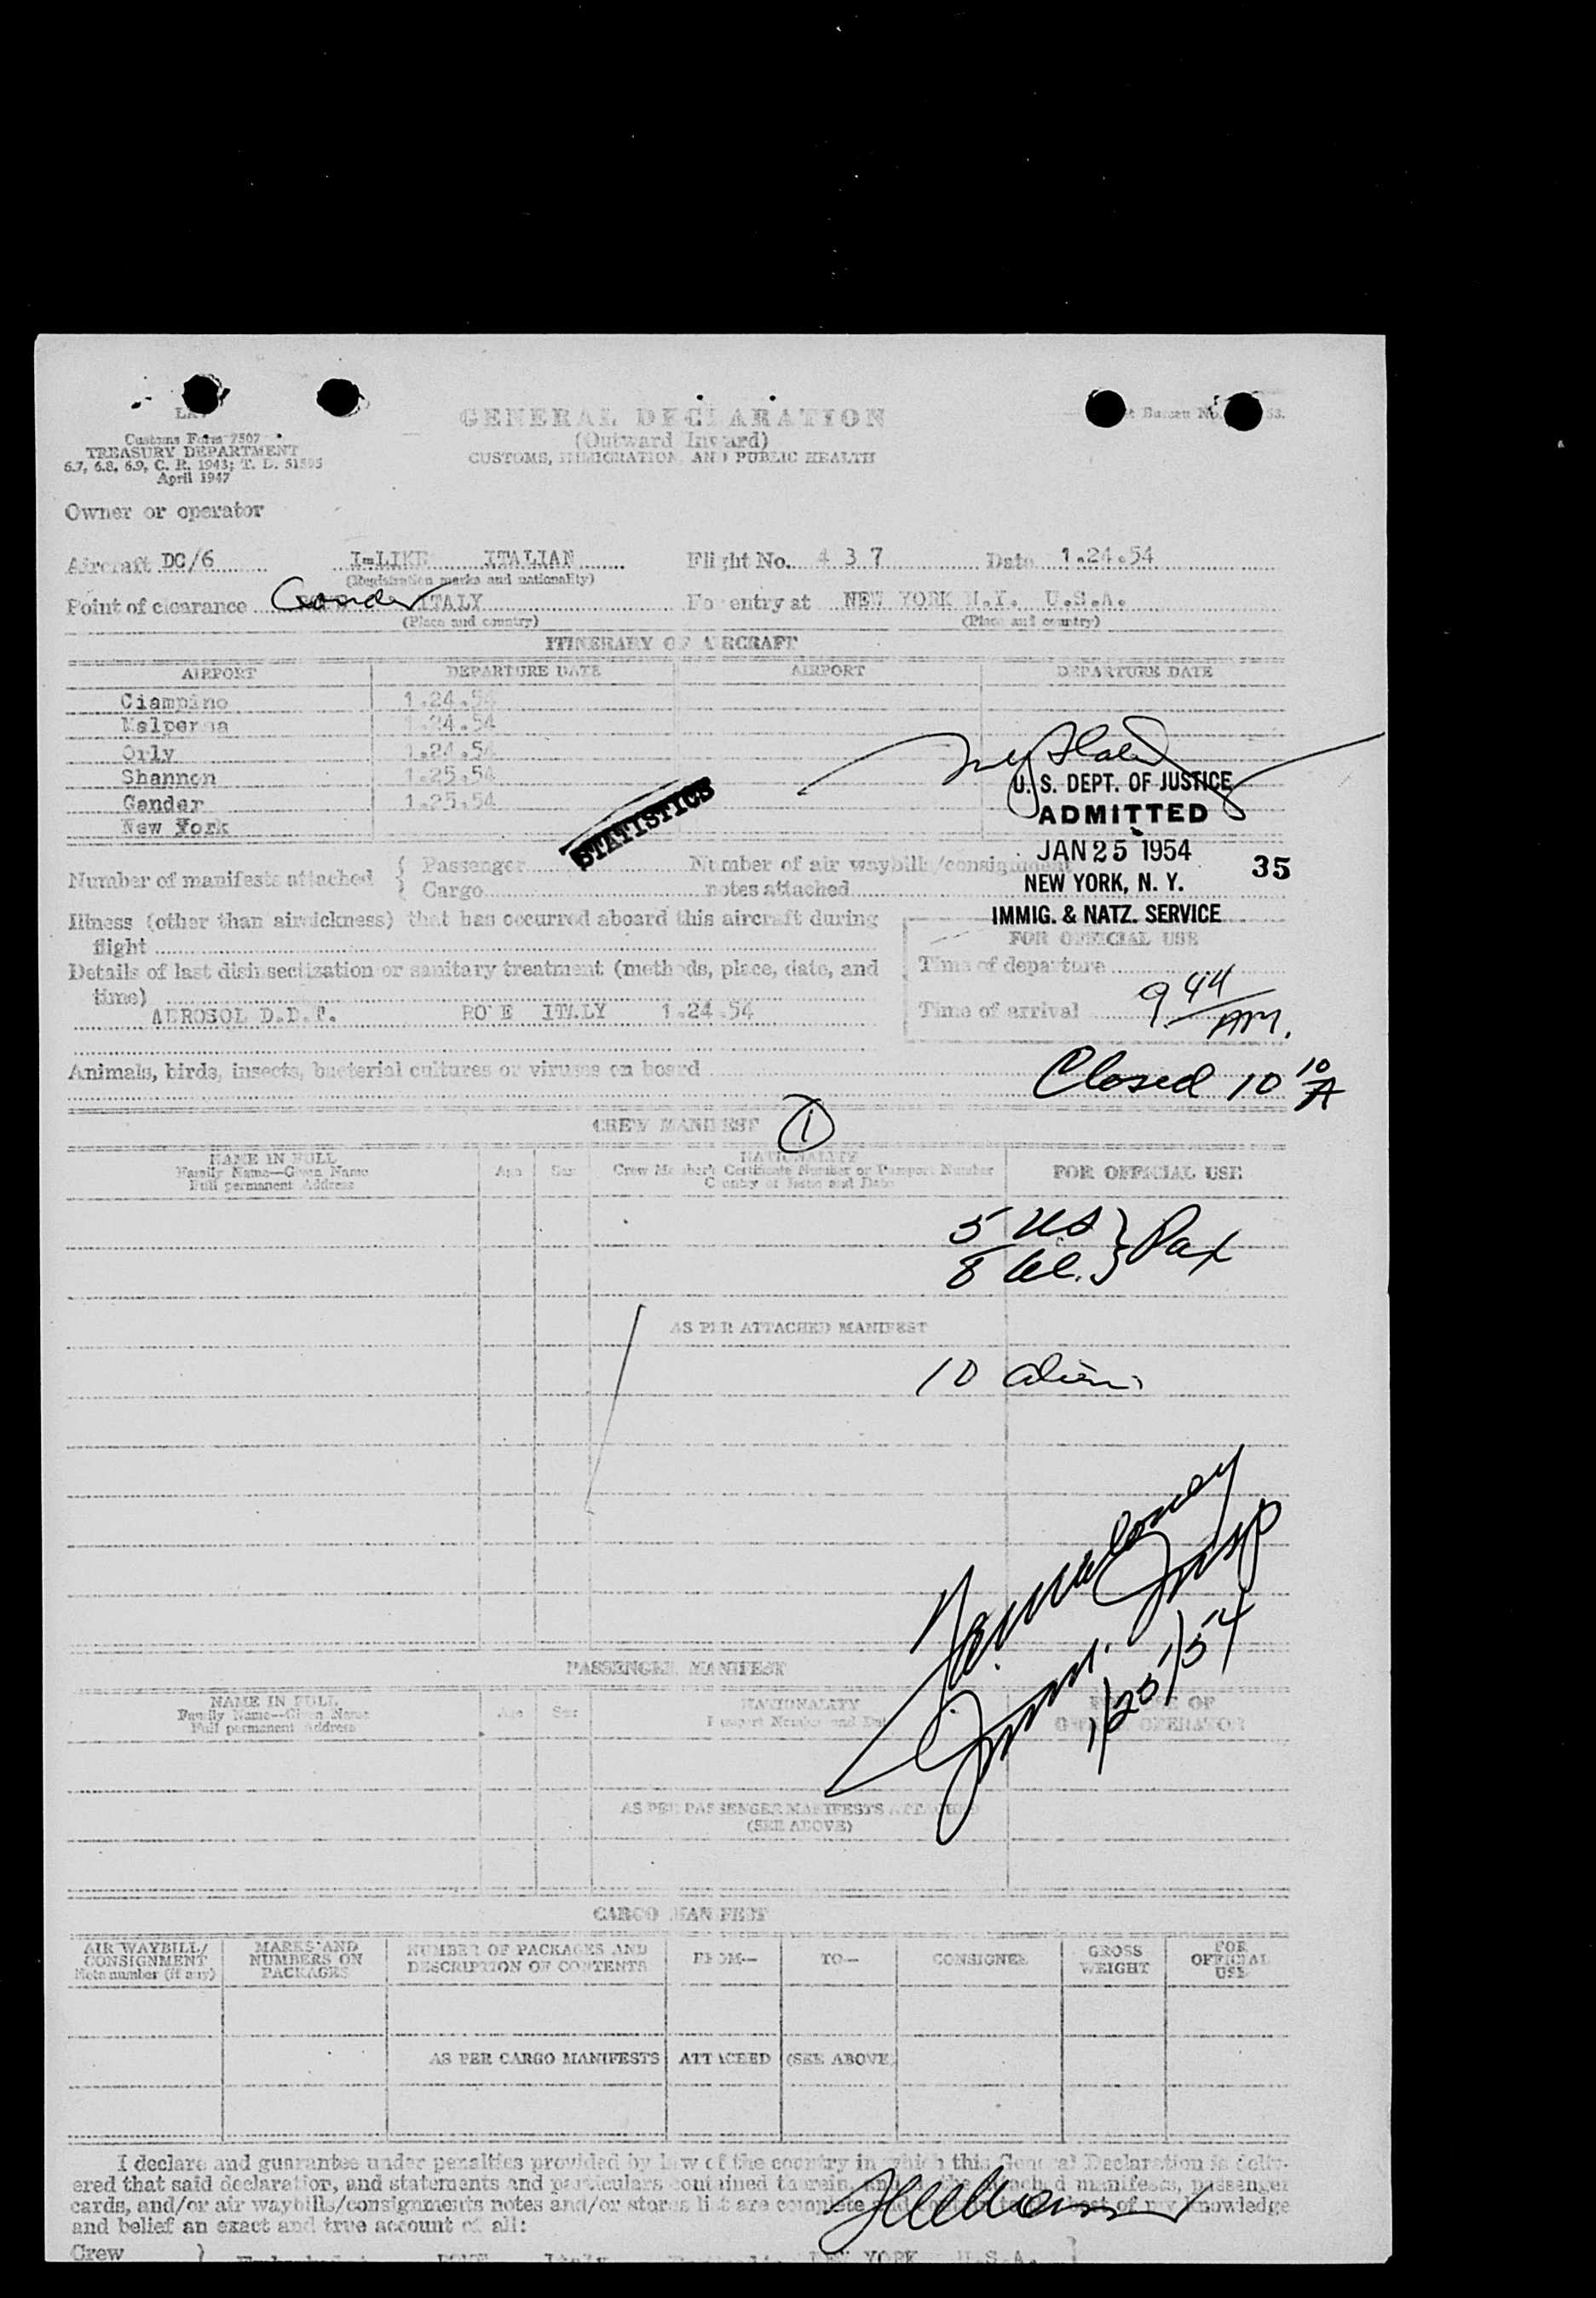 GENERAL DECLARATION
(Outward Inward)
CUSTOMS, IMMIGRATION, AND PUBLIC HEALTH
Customs Form 7507
TREASURY DEPARTMENT
6.7, 6.8, 6.9, C. R. 1943; T. D. 51595
April 1947
Owner or operator
Aircraft DC/6 I-LIKE ITALIAN Flight No. 4 3 7 Date 1.24.54
(Registration marks and nationality)
Point of clearance Gander ITALY For entry at NEW YORK N.Y. U.S.A.
(Place and country) (Place and country)
ITINERARY OF AIRCRAFT
AIRPORT DEPARTURE DATE AIRPORT DEPARTURE DATE
Ciampino 1.24.54
Malpensa 1.24.54
Orly 1.24.54
Shannon 1.25.54
Gander 1.25.54
New York
U. S. DEPT. OF JUSTICE
ADMITTED
JAN 25 1954 35
NEW YORK, N. Y.
IMMIG. & NATZ. SERVICE
STATISTICS
Number of manifests attached { Passenger Number of air waybills/consignment
Cargo notes attached
Illness (other than airsickness) that has occurred aboard this aircraft during
flight
FOR OFFICIAL USE
Details of last disinsectization or sanitary treatment (methods, place, date, and
time)
Time of departure
AEROSOL D.D.T. ROME ITALY 1.24.54
Time of arrival 9 44 AM.
Animals, birds, insects, bacterial cultures or viruses on board
Closed 10 10 A
CREW MANIFEST 1
NAME IN FULL
Family Name—Given Name
Full permanent Address
Age Sex
NATIONALITY
Crew Member's Certificate Number or Passport Number
Country of Issue and Date
FOR OFFICIAL USE
5 US } Pax
8 al.
AS PER ATTACHED MANIFEST
10 alien
1/25/54
PASSENGER MANIFEST
NAME IN FULL
Family Name—Given Name
Full permanent Address
Age Sex
NATIONALITY
Passport Number and
FOR USE OF
OPERATOR
AS PER PASSENGER MANIFESTS ATTACHED
(SEE ABOVE)
CARGO MANIFEST
AIR WAYBILL/
CONSIGNMENT
Note number (if any)
MARKS AND
NUMBERS ON
PACKAGES
NUMBER OF PACKAGES AND
DESCRIPTION OF CONTENTS
FROM— TO— CONSIGNEE
GROSS
WEIGHT
FOR
OFFICIAL
USE
AS PER CARGO MANIFESTS ATTACHED (SEE ABOVE)
I declare and guarantee under penalties provided by law of the country in which this General Declaration is deliv-
ered that said declaration, and statements and particulars contained therein, and in the attached manifests, passenger
cards, and/or air waybills/consignments notes and/or stores list are complete and contain to the best of my knowledge
and belief an exact and true account of all:
Crew } ROME Italy NEW YORK U.S.A.